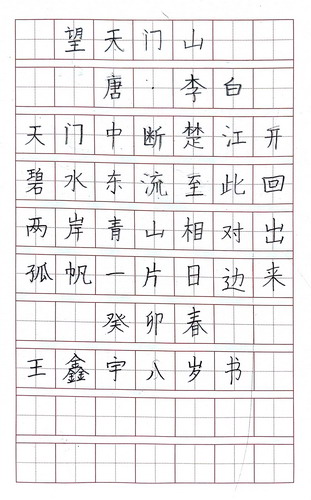 望天门山
唐·李白
天门中断楚江开
碧水东流至此回
两岸青山相对出
孤帆一片日边来
癸卯春
王鑫宇八岁书